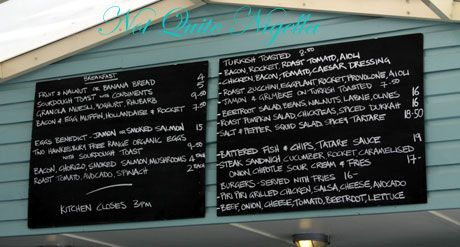 Not Quite Nigella
BREAKFAST
FRUIT & WALNUT OR BANANA BREAD 4
SOURDOUGH TOAST WITH CONDIMENTS 5
GRANOLA MUESLI, YOGHURT, RHUBARB 9.50
BACON & EGG MUFFIN, HOLLANDAISE & ROCKET 7.50
EGGS BENEDICT - JAMON OR SMOKED SALMON 15
TWO HAWKESBURY FREE RANGE ORGANIC EGGS
WITH SOURDOUGH TOAST 9.50
BACON, CHORIZO, SMOKED SALMON, MUSHROOMS 4 EACH
ROAST TOMATO, AVOCADO, SPINACH 2 EACH
KITCHEN CLOSES 3PM
TURKISH TOASTED 9.50
- BACON, ROCKET, ROAST TOMATO, AIOLI
- CHICKEN, BACON, TOMATO, CAESAR DRESSING
- ROAST ZUCCHINI, EGGPLANT, ROCKET, PROVOLONE, AIOLI
- JAMON & GRUYERE ON TURKISH TOASTED 7.50
- BEETROOT SALAD, BEANS, WALNUTS, LABNE, OLIVES 16
- ROAST PUMPKIN SALAD, CHICKPEAS, SPICED DUKKAH 16
- SALT & PEPPER SQUID SALAD, SPICY TARTARE 18.50
- BATTERED FISH & CHIPS, TATARE SAUCE 19
- STEAK SANDWICH CUCUMBER, ROCKET, CARAMELISED
ONION, CHIPOTLE SOUR CREAM & FRIES 17-
BURGERS - SERVED WITH FRIES 16-
- PIRI PIRI GRILLED CHICKEN, SALSA, CHEESE, AVOCADO
- BEEF, ONION, CHEESE, TOMATO, BEETROOT, LETTUCE